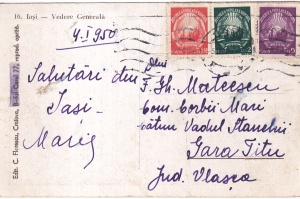 16. Iași — Vedere Generală
4.I.950
Salutări din
Iași
Maria
Dlui
F. Gh. Mateescu
Com. Corbii Mari
cătun Vadul Stanchii
Gara Titu
Jud. Vlașca
Edit. C.